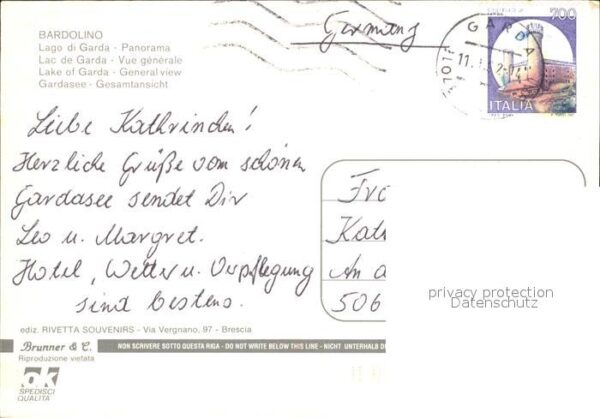 BARDOLINO
Lago di Garda - Panorama
Lac de Garda - Vue générale
Lake of Garda - General view
Gardasee - Gesamtansicht
Germany
700
GARDA
ITALIA
Liebe Kathrinchen!
Herzliche Grüße vom schönen
Gardasee sendet Dir
Leo u. Margret.
Hotel, Wetter u. Verpflegung
sind bestens.
Kat
An
506
privacy protection
Datenschutz
ediz. RIVETTA SOUVENIRS - Via Vergnano, 97 - Brescia
Brunner & C.
Riproduzione vietata
NON SCRIVERE SOTTO QUESTA RIGA - DO NOT WRITE BELOW THIS LINE - NICHT UNTERHALB
ok
SPEDISCI
QUALITÀ